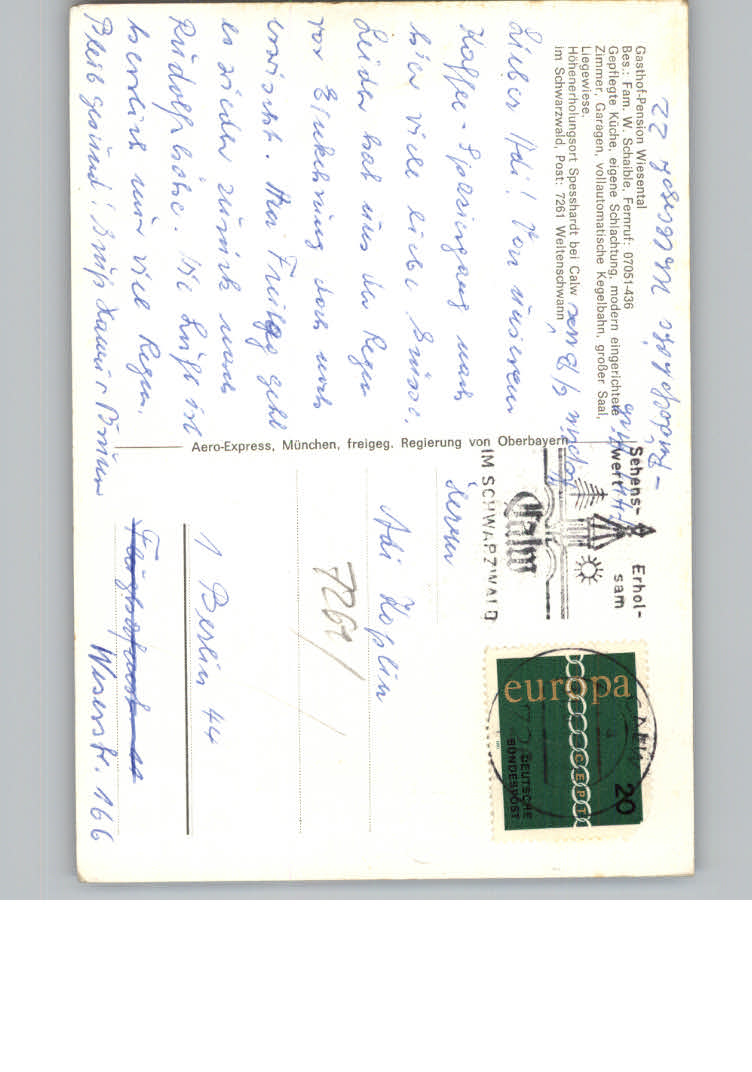 Gasthof-Pension Wiesental
Bes.: Fam. W. Schaible, Fernruf: 07051-436
Gepflegte Küche, eigene Schlachtung, modern eingerichtete
Zimmer, Garagen, vollautomatische Kegelbahn, großer Saal,
Liegewiese.
Höhenerholungsort Spesshardt bei Calw
im Schwarzwald, Post: 7261 Weltenschwann
Lieber Adi! Von unserem
Kaffee-Spaziergang nach
hier viele liebe Grüsse.
Leider hat uns der Regen
vor Einkehrung doch noch
erwischt. Am Freitag geht
es wieder zurück nach
Rudolfshöhe. Die Luft ist
herrlich nur viel Regen.
Bleib gesund! Gruß
Aero-Express, München, freigeg. Regierung von Oberbayern
Sehens-
wert
Erhol-
sam
Calw
IM SCHWARZWALD
europa
CEPT
20
DEUTSCHE
BUNDESPOST
Herrn
Adi Koplin
7261
1 Berlin 44
Weserstr. 166